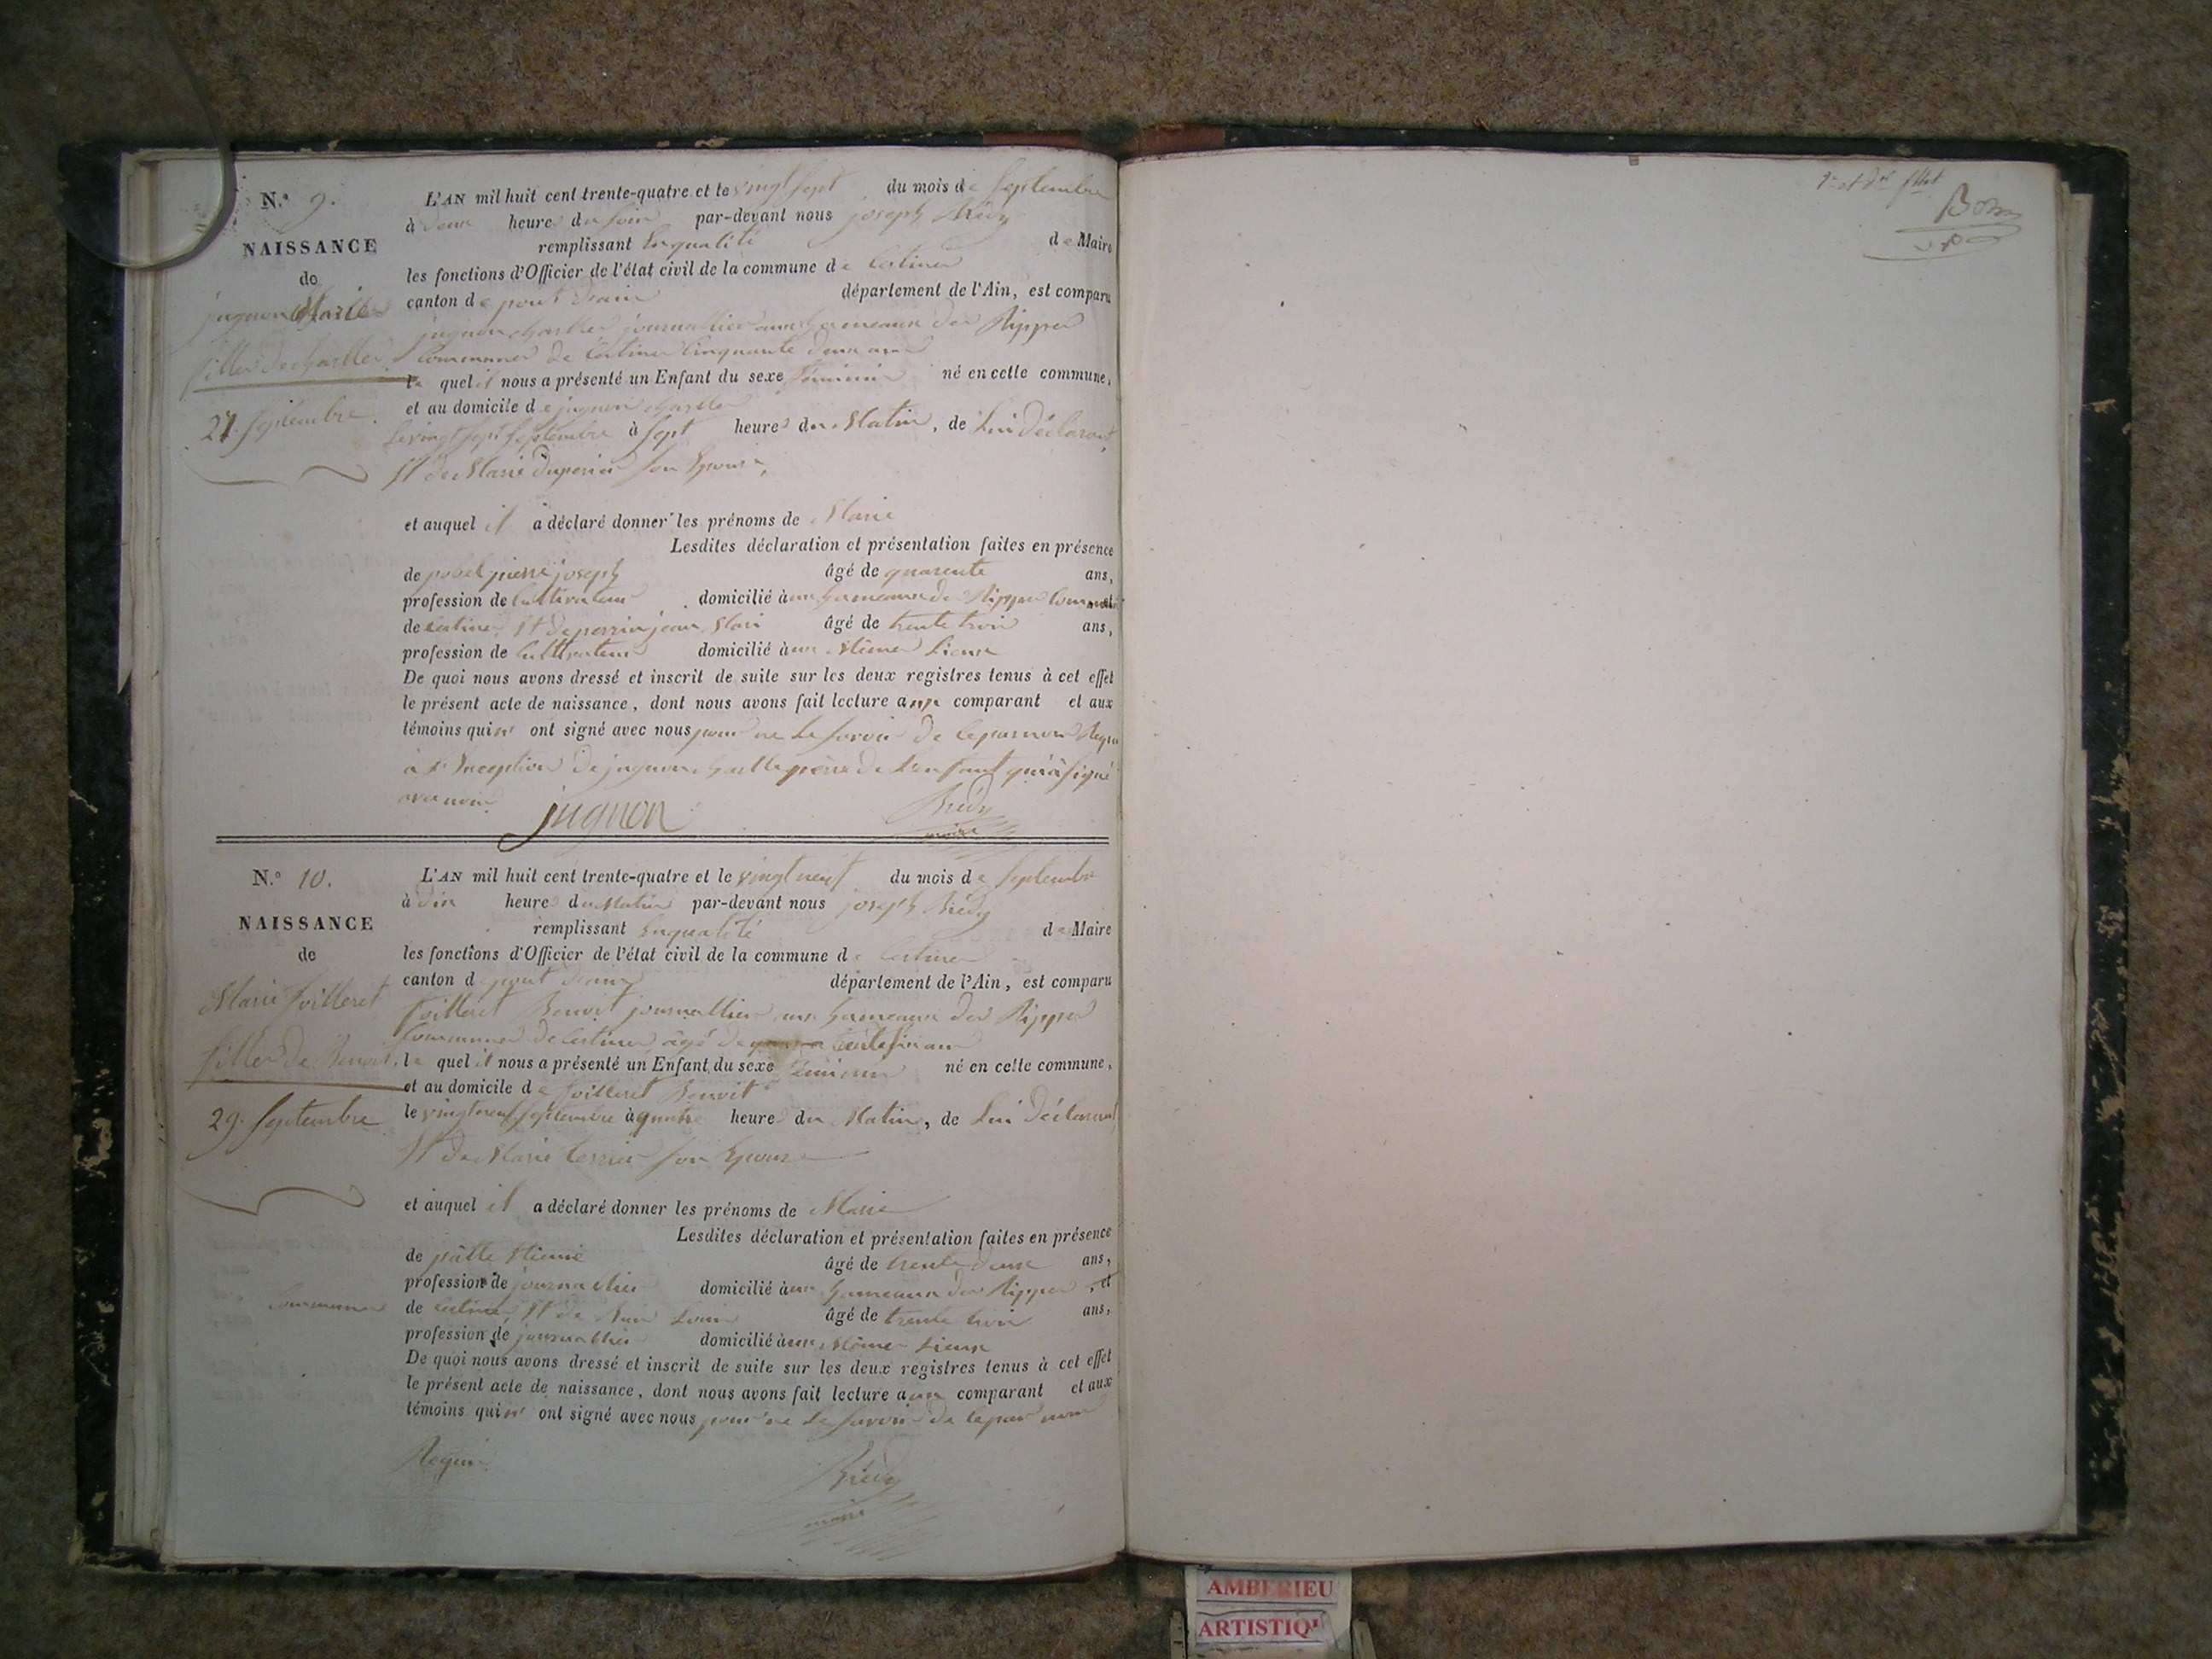 N.° 9.
NAISSANCE
de
jugnon Marie
fille de charlle
27. Septembre
L'AN mil huit cent trente-quatre et le vingt sept du mois de Septembre
à deux heures du soir par-devant nous joseph Briédy
remplissant Enqualité de Maire
les fonctions d'Officier de l'état civil de la commune de Certines
canton de pont dain département de l'Ain, est comparu
jugnon charlle journallier aux hameaux des Rippes
commune de Certines Cinquante deux ans
le quel il nous a présenté un Enfant du sexe féminin né en cette commune,
et au domicile de jugnon charlle
le vingt sept septembre à sept heures du Matin, de lui déclarant
Et de Marie duperier son Epouse,
et auquel il a déclaré donner les prénoms de Marie
Lesdites déclaration et présentation faites en présence
de pobel pierre joseph âgé de quarente ans,
profession de Cultivateur domicilié aux hameaux des Rippes Commune et
de certines, Et de perrin jean Mari âgé de trente trois ans,
profession de Cultivateur domicilié à au Même Lieux
De quoi nous avons dressé et inscrit de suite sur les deux registres tenus à cet effet
le présent acte de naissance, dont nous avons fait lecture aux comparant et aux
témoins qui n' ont signé avec nous pour ne le savoir de ce par nous Requi
à l'Exception de jugnon charlle père de L'enfant qui à signé
avec nous
jugnon
Briédy
maire
N.° 10.
NAISSANCE
de
Marie foilleret
fille de Benoit
29. Septembre
L'AN mil huit cent trente-quatre et le vingt neuf du mois de Septembre
à dix heures du Matin par-devant nous joseph Briédy
remplissant Enqualité de Maire
les fonctions d'Officier de l'état civil de la commune de Certines
canton de pont dain département de l'Ain, est comparu
foilleret Benoit journallier aux hameaux des Rippes
Commune de Certines âgé de trente six ans
le quel il nous a présenté un Enfant du sexe féminin né en cette commune,
et au domicile de foilleret Benoit
le vingt neuf septembre à quatre heures du Matin, de lui déclarant
Et de Marie terrier son Epouse
et auquel il a déclaré donner les prénoms de Marie
Lesdites déclaration et présentation faites en présence
de pâtte Etienne âgé de trente deux ans,
profession de journallier domicilié aux hameaux des Rippes, et
commune de certines, Et de Louis âgé de trente trois ans,
profession de journallier domicilié à au Même Lieux
De quoi nous avons dressé et inscrit de suite sur les deux registres tenus à cet effet
le présent acte de naissance, dont nous avons fait lecture aux comparant et aux
témoins qui n' ont signé avec nous pour ne le savoir de ce par nous
Requi
Briédy
maire
AMBERIEU
ARTISTIQU